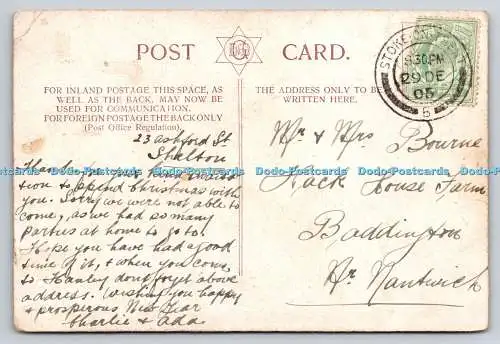 POST CARD.
FOR INLAND POSTAGE THIS SPACE, AS
WELL AS THE BACK, MAY NOW BE
USED FOR COMMUNICATION.
FOR FOREIGN POSTAGE THE BACK ONLY
(Post Office Regulation).
THE ADDRESS ONLY TO BE
WRITTEN HERE.
STOKE-ON-TRENT
8.30PM
29 DE
05
5
23 Ashford St
Shelton
Many thanks for kind invita
tion to spend Christmas with
you. Sorry we were not able to
come, as we had so many
parties at home to go to.
Hope you have had a good
time of it, & when you come
to Hanley dont forget above
address. Wishing you happy
& prosperous New Year
Charlie & Ada
Mr & Mrs Bourne
Hack House Farm
Baddington
Nr Nantwich